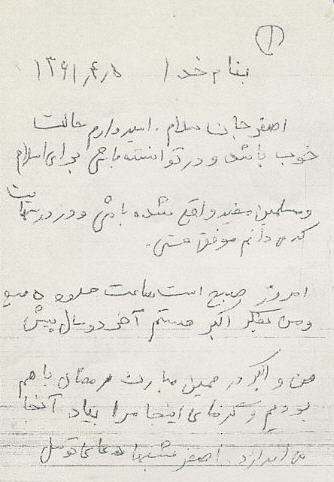 (۱)
بنام خدا ۱۳۶۱٫۴٫۵
اصغر جان سلام . امیدوارم حالت
خوب باشد و در توانسته باشی برای اسلام
و مسلمین مفید واقع شده باشی و در درسهایت
که می دانم موفق هستی.
امروز صبح است ساعت حدود ۵ صبح
و من بفکر اکبر هستم آخر دو سال پیش
من و اکبر در همین مبارک رمضان با هم
بودیم و گرمای اینجا مرا بیاد آنجا
می اندازد. اصغر شبها دعای توسل